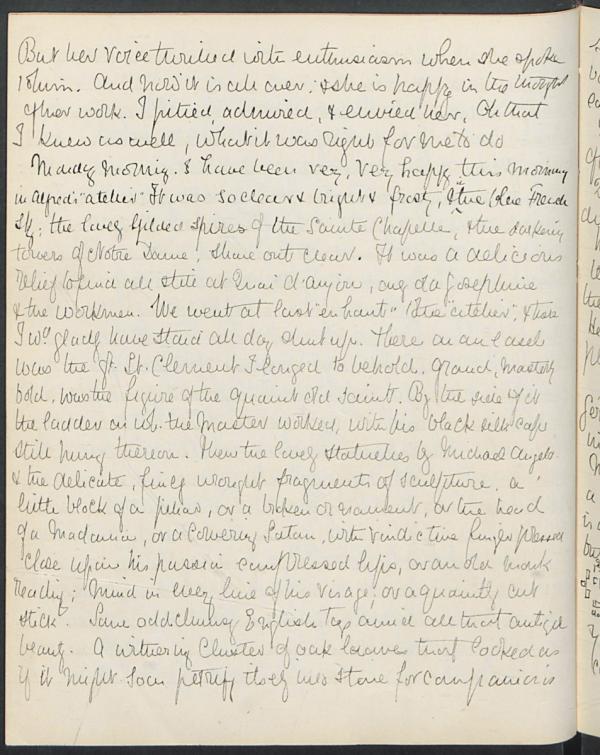 But her voice thrilled with enthusiasm when she spoke
of him. And now it is all over, & she is happy in the thought
of her work. I pitied, admired, & envied her, Oh that
I knew as well, what it was right for me to do
Monday Morning. I have been very, very happy this morning
in Alfred's "atelier" It was so clear & bright & frosty, & the blue French
sky; the lovely gilded spires of the Sainte Chapelle, & the darkening
towers of Notre Dame, shone out clear. It was a delicious
relief to find all still at Quai d'anjou, only old Josephine
& the workmen. We went at last "en haut" (the "atelier", & there
I wd gladly have staid all day shut up. There on an easel
was the gt. St. Clement I longed to behold. Grand, masterly
bold, was the figure of the quaint old saint. By the side of it
the ladder on wh. the Master worked, with his black silk cap
still hung thereon. Then the lovely statuettes by Michael Angelo
& the delicate, finely wrought fragments of sculpture, a
little block of a pillar, or a broken ornament, or the head
of a Madonna, or a cowering Satan, with vindictive fingers pressed
close upon his passion compressed lips, or an old monk
reading; mind in every line of his visage, or a quaintly cut
stick. Some odd clumsy English toys amid all that antique
beauty. A withering cluster of oak leaves that looked as
if it might soon petrify itself into stone for companions